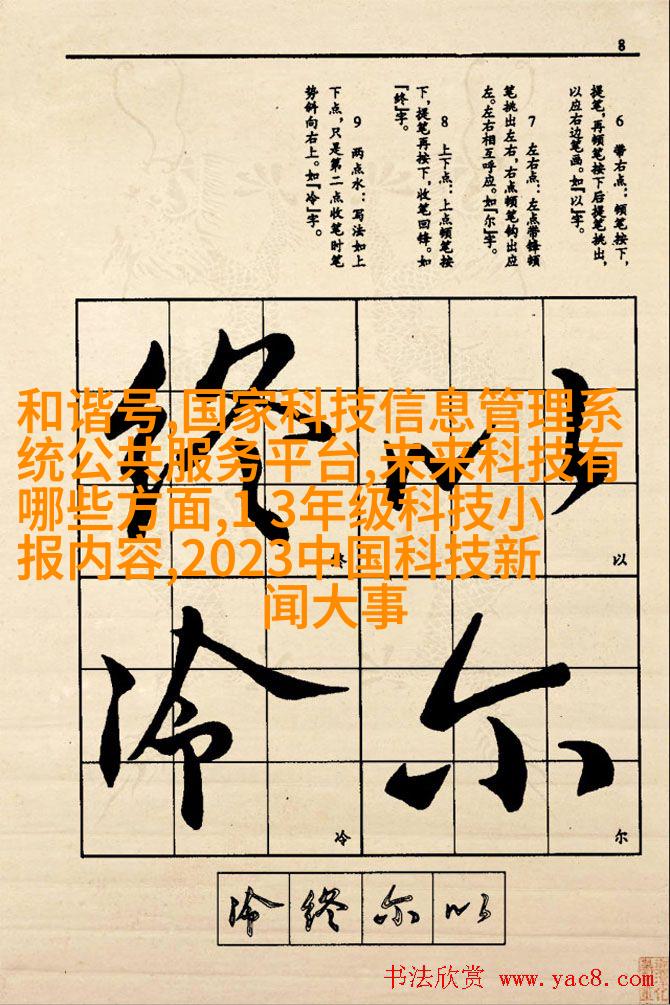 8
6 带右点：顿笔按下，
提笔，再顿笔按下后提笔挑出，
以应右边笔画。如『以』字。
7 左右点：左点带锋顿
笔挑出左右，右点顿笔钩出应
左。左右相互呼应。如『尔』字。
8 上下点：上点顿笔按
下，提笔再按下，收笔回锋。如
『终』字。
9 两点水：写法如上
下点，只是第二点收笔时笔
势斜向右上。如『冷』字。
和谐号,国家科技信息管理系
统公共服务平台,未来科技有
哪些方面,1 3年级科技小
报内容,2023中国科技新
闻大事
终 以
终 以
冷 尔
冷 尔
冷 终 尔 以
书法欣赏 www.yac8.com